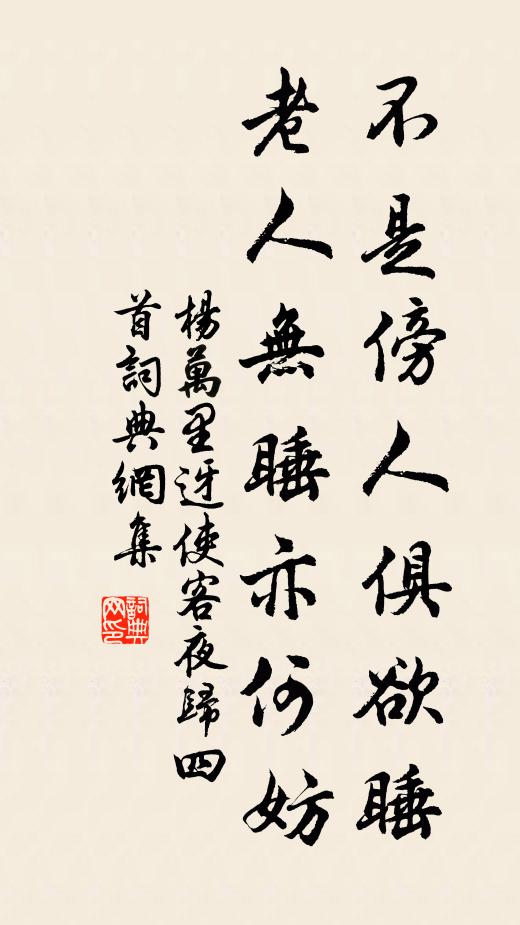 不是傍人俱欲睡
老人無睡亦何妨
楊萬里迓使客夜歸四
首詞典網集
詞典網印